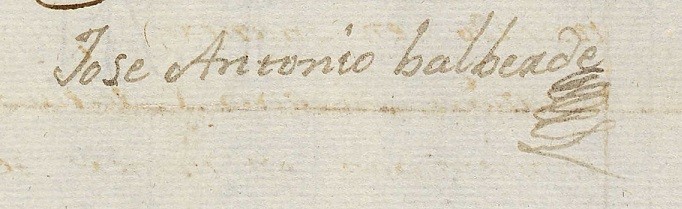 Jose Antonio balberde